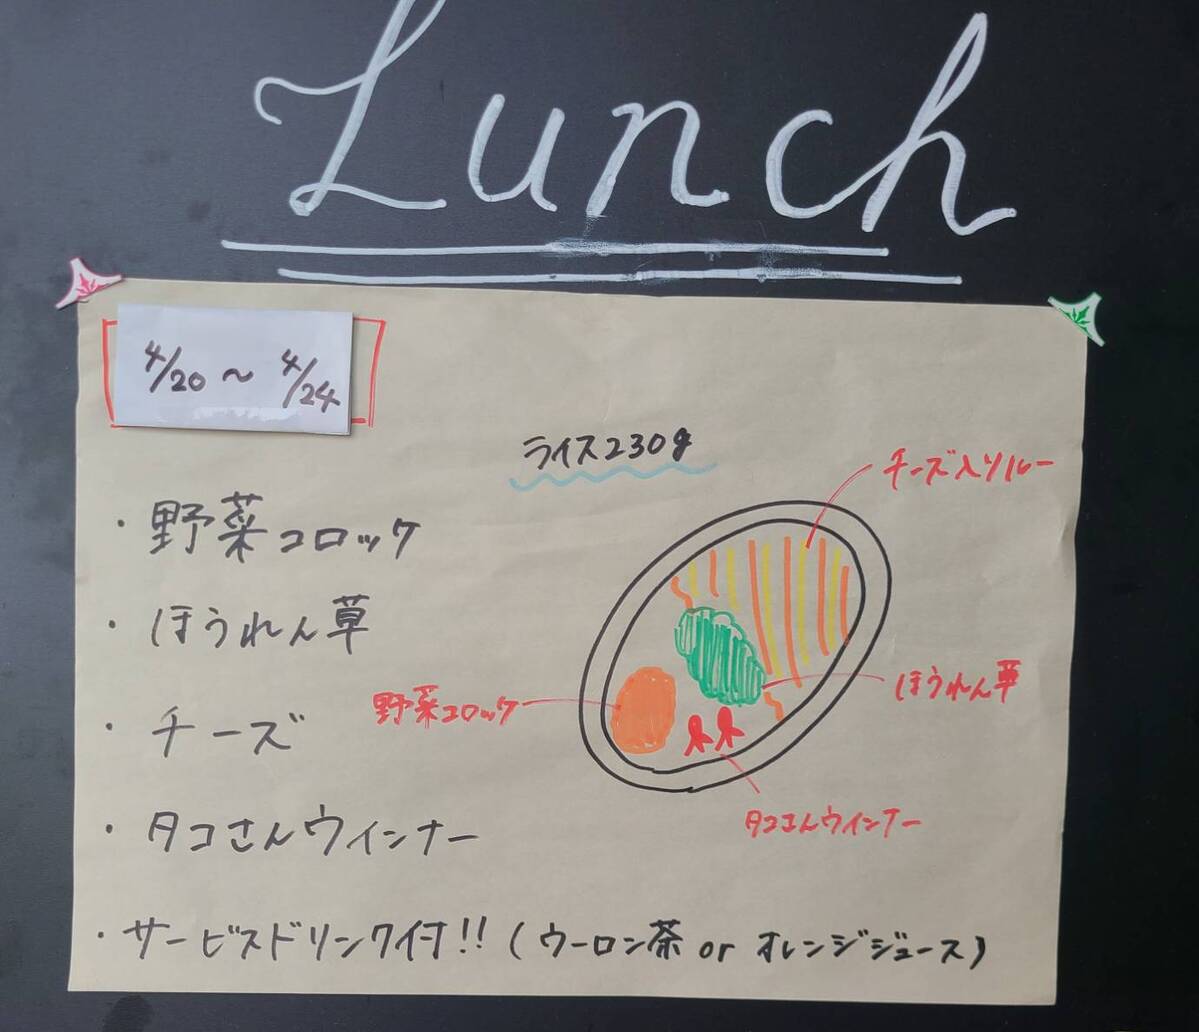 Lunch
4/20 ~ 4/24
ライス230g
チーズ入りルー
・野菜コロック
・ほうれん草
ほうれん草
野菜コロッケ
・チーズ
・タコさんウインナー
タコさんウインナー
・サービスドリンク付!! (ウーロン茶 or オレンジジュース)